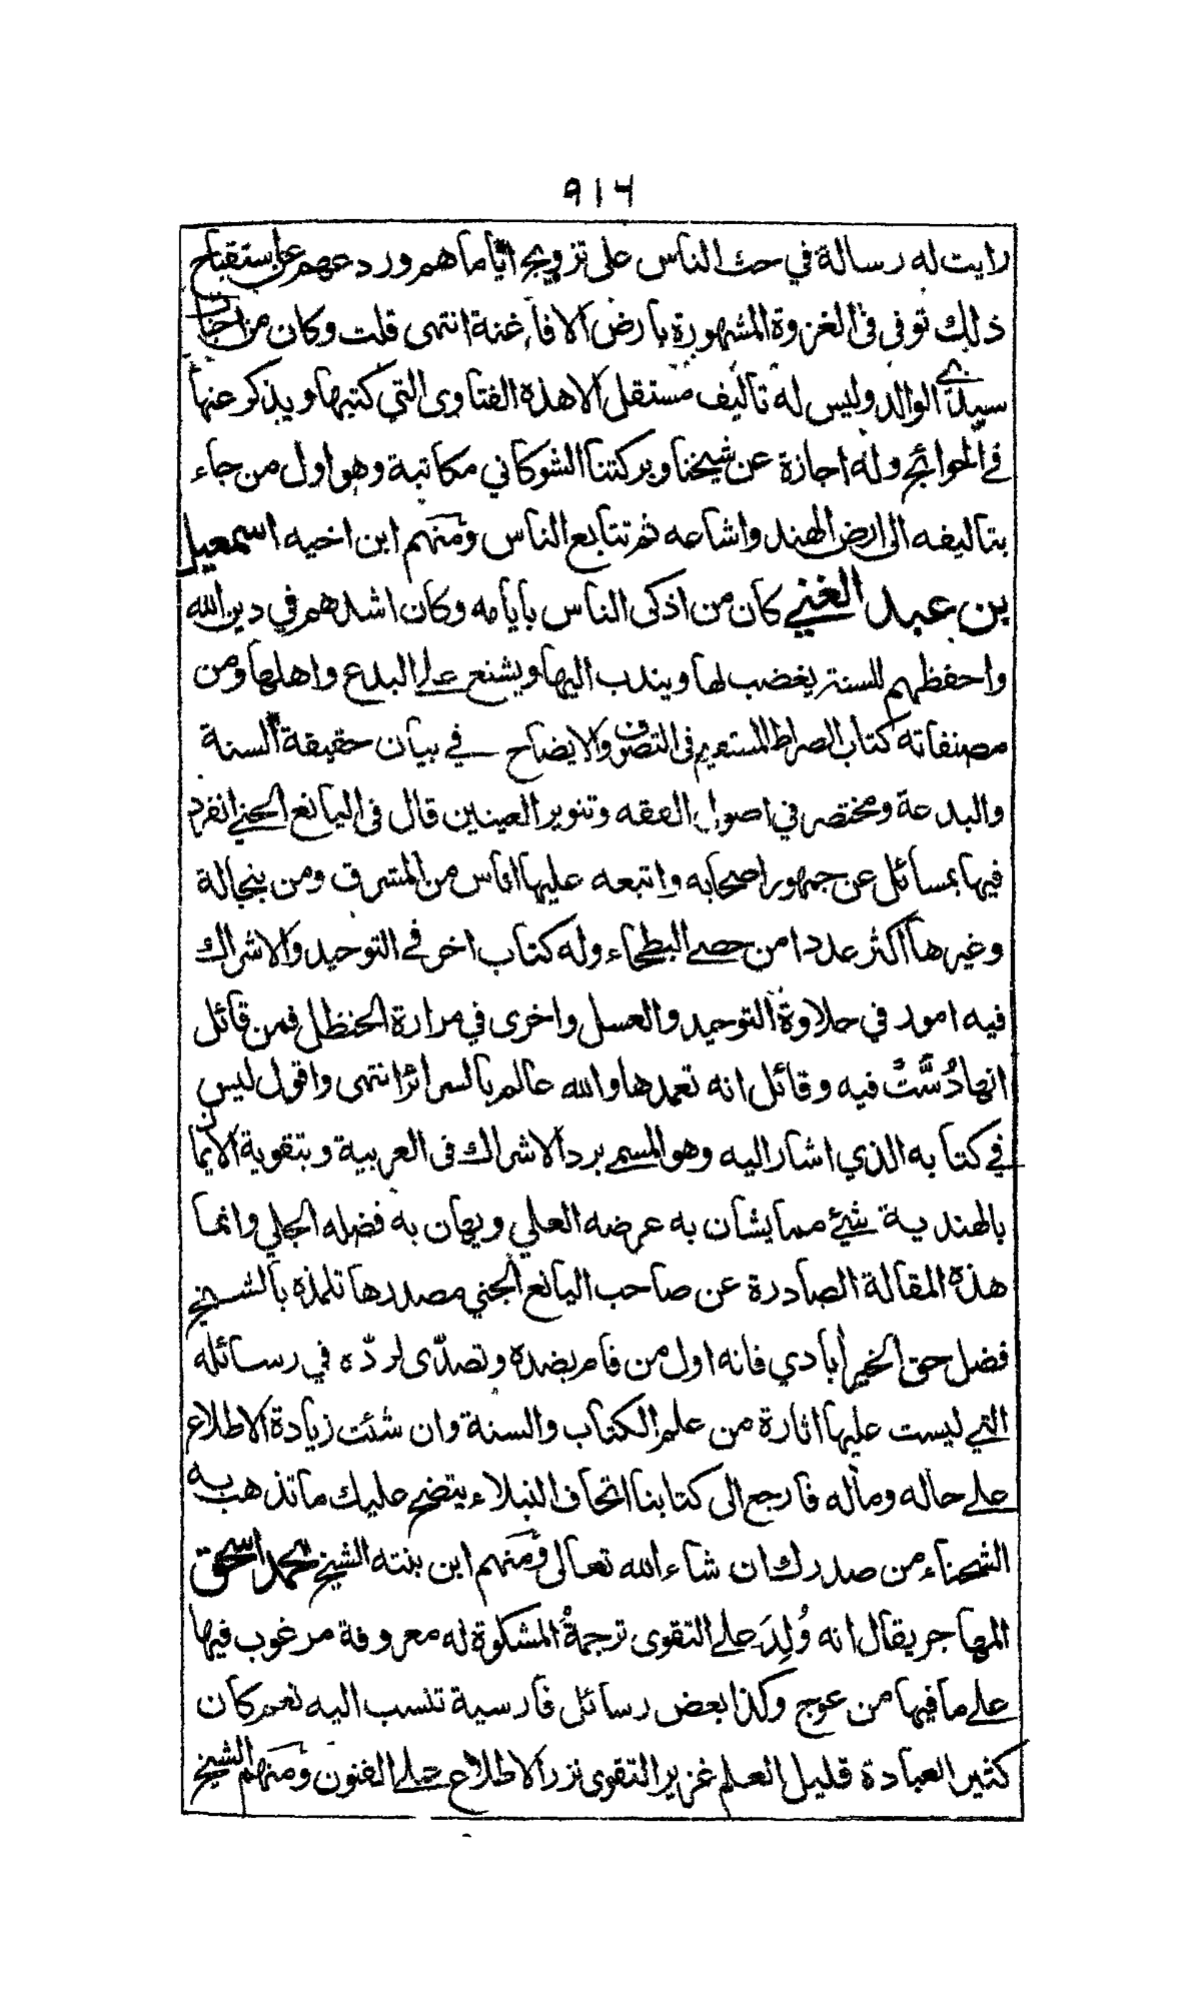 ٩١٤
رايت له رسالة في حث الناس على تزويج اياماهم وردعهم عن استقباح
ذلك توفي في الغزوة المشهورة بارض الافاغنة انتهى قلت وكان من احباب
سيدي الوالد وليس له تأليف مستقل الا هذه الفتاوى التي كتبها ويذكر عنها
في الحوائج وله اجازة عن شيخنا وبركتنا الشوكاني مكاتبة وهو اول من جاء
بتاليفه الى ارض الهند واشاعه ثم تتابع الناس ومنهم ابن اخيه اسمعيل
بن عبد الغني كان من اذكى الناس بايامه وكان اشدهم في دين الله
واحفظهم للسنة يغضب لها ويندب اليها ويشنع على البدع واهلها ومن
مصنفاته كتاب الصراط المستقيم في التصوف والايضاح في بيان حقيقة السنة
والبدعة ومختصر في اصول الفقه وتنوير العينين قال في اليانع الجني انفرد
فيها بمسائل عن جمهور اصحابه واتبعه عليها اناس من المشرق ومن بنجالة
وغيرها اكثر عددا من حصى البطحاء وله كتاب اخر في التوحيد والاشراك
فيه امور في حلاوة التوحيد والعسل واخرى في مرارة الحنظل فمن قائل
انها دُسَّتْ فيه وقائل انه تعمدها والله عالم بالسرائر انتهى واقول ليس
في كتابه الذي اشار اليه وهو المسمى برد الاشراك في العربية وبتقوية الايمان
بالهندية شيئ مما يشان به عرضه العلي ويهان به فضله الجلي وانما
هذه المقالة الصادرة عن صاحب اليانع الجني مصدرها تلمذه بالشيخ
فضل حق الخير ابادي فانه اول من قام بضده وتصدّى لردّه في رسائله
التي ليست عليها اثارة من علم الكتاب والسنة وان شئت زيادة الاطلاع
على حاله وماله فارجع الى كتابنا اتحاف النبلاء يتضح عليك ما تذهب به
الشحناء من صدرك ان شاء الله تعالى ومنهم ابن بنته الشيخ محمد اسحق
المهاجر يقال انه وُلِدَ على التقوى ترجمةُ المشكوة له معروفة مرغوب فيها
على ما فيها من عوج وكذا بعض رسائل فارسية تنسب اليه نعم كان
كثير العبادة قليل العلم غزير التقوى نزر الاطلاع على الفنون ومنهم الشيخ